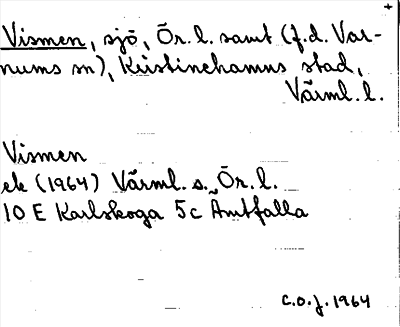 Vismen, sjö, Ör. l. samt (f.d. Var-
nums sn), Kristinehamns stad,
Värml. l.
Vismen
ek (1964) Värml. o. Ör. l.
10 E Karlskoga 5c Åmtfalla
C.O.J. 1964